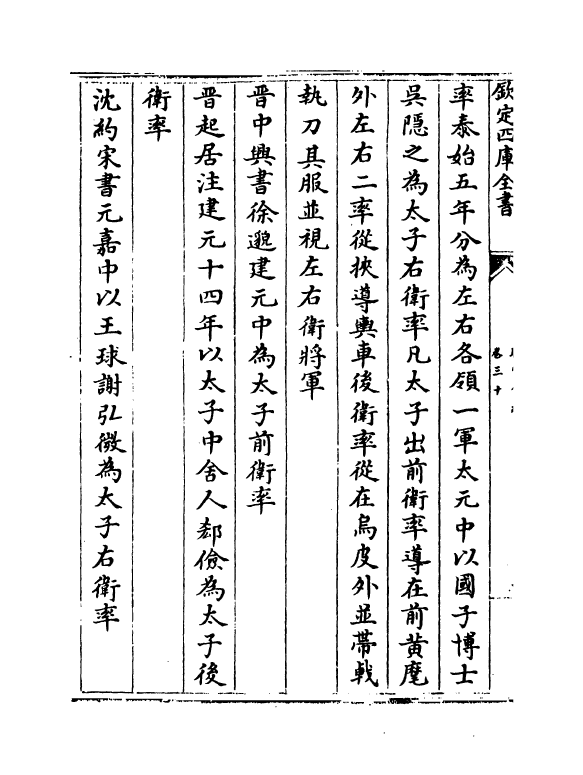 欽定四庫全書
卷三十
率泰始五年分為左右各領一軍太元中以國子博士
吳隱之為太子右衛率凡太子出前衛率導在前黃麾
外左右二率從挾導輿車後衛率從在烏皮外並帶戟
執刀其服並視左右衛將軍
晉中興書徐邈建元中為太子前衛率
晉起居注建元十四年以太子中舍人郄儉為太子後
衛率
沈約宋書元嘉中以王球謝弘微為太子右衛率